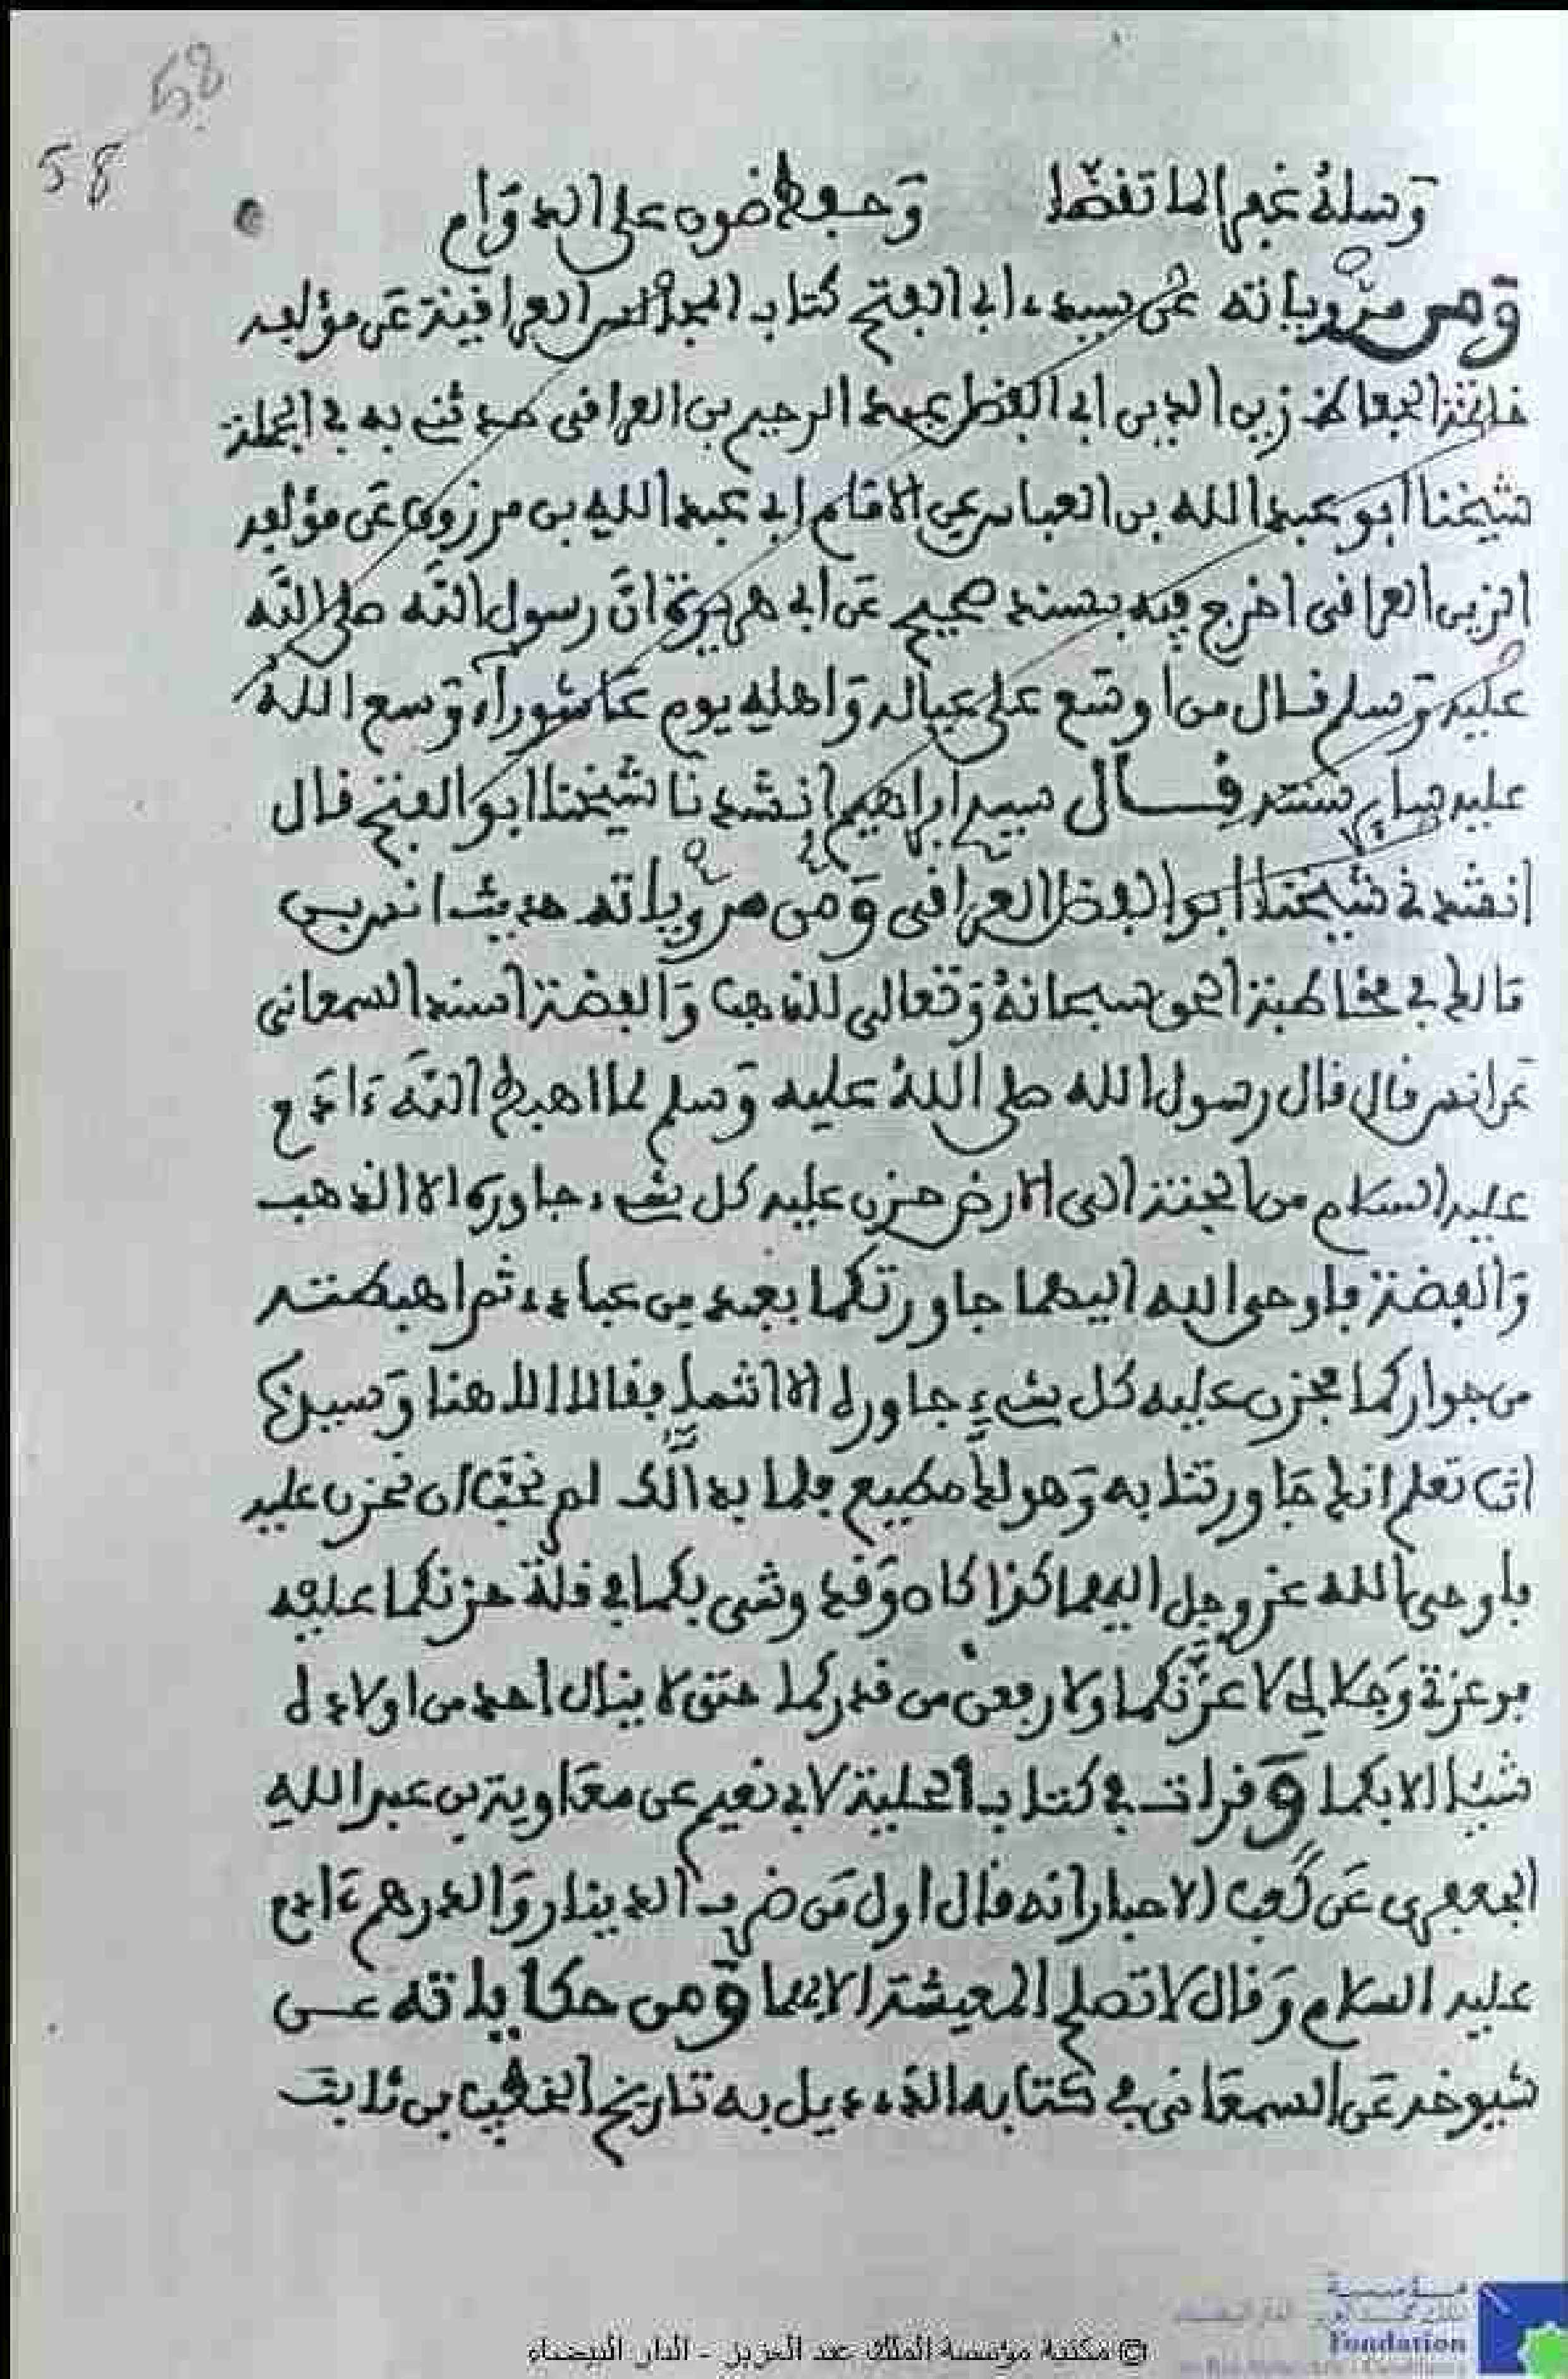 58
58
وَسلهُ غفرا لما تفضا وَحفظ ضوه على الدوَام
وَمن مرْوياته عن سيدي ابي الفتح كتاب المجالس العراقية عَن مؤلفه
خاتمة الحفاظ زين الدين ابي الفضل عبد الرحيم بن العراقي حدثني به في الجملة
شيخنا ابو عبد الله بن العباس عن الامَام ابي عبد الله بن مرزوق عَن مؤلفه
الزين العراقي اخرج فيه بسند صحيح عَن ابي هريرة انَّ رسول الله صلى الله
عليه وَسلم قال من اوسَع على عياله وَاهله يوم عَاشوراء وَسع اللهُ
عليه سائر سنته قال سيدي ابراهيم انشدنَا شيخنا ابو الفتح قال
انشدني شيخنا ابو الفضل العراقي وَمن مرْوياته حديث انس بن
مالك في مخاطبة الحق سبحانهُ وَتعالى للذهب وَالفضة اسند السمعاني
عَن انس قال قال رسول الله صلى اللهُ عليه وَسلم لما اهبط اللهَ ءَادَم
عليه السلام من الجنة الى الارض حزن عليه كل شيء جاوره الا الذهب
وَالفضة فاوحى الله اليهما جاورتكما بعبد من عبادي ثم اهبطته
من جواركما فحزن عليه كل شيء جاوره الا انتما فقالا الاهنا وَسيدنا
انت تعلم انك جَاورتنا به وَهو لك مطيع فلما بدالك لم نحبَّ ان نحزن عليه
فاوحى الله عز وجل اليهما كذا كان وَقد وشى بكما في قلة حزنكما عليه
فوعزتي وَجلالي لاعزَّنكما ولارفعنَّ من قدركما حتى لا ينال احد من اولاده
شيئا الا بكما وَقرات في كتاب الحلية لابي نعيم عن معَاوية بن عبد الله
الجعفري عَن كَعب الاحبار انه قال اول مَن ضرب الدينار وَالدرهم ءَادم
عليه السلام وَقال لا تصلح المعيشة الا بهما وَمن حكاياته عن
شيوخه عَن السمعَاني في كتابه الذي ذيل به تاريخ الخطيب بن ثابت
مؤسسة
Fondation
© مكتبة مؤسسة الملك عبد العزيز - الدار البيضاء